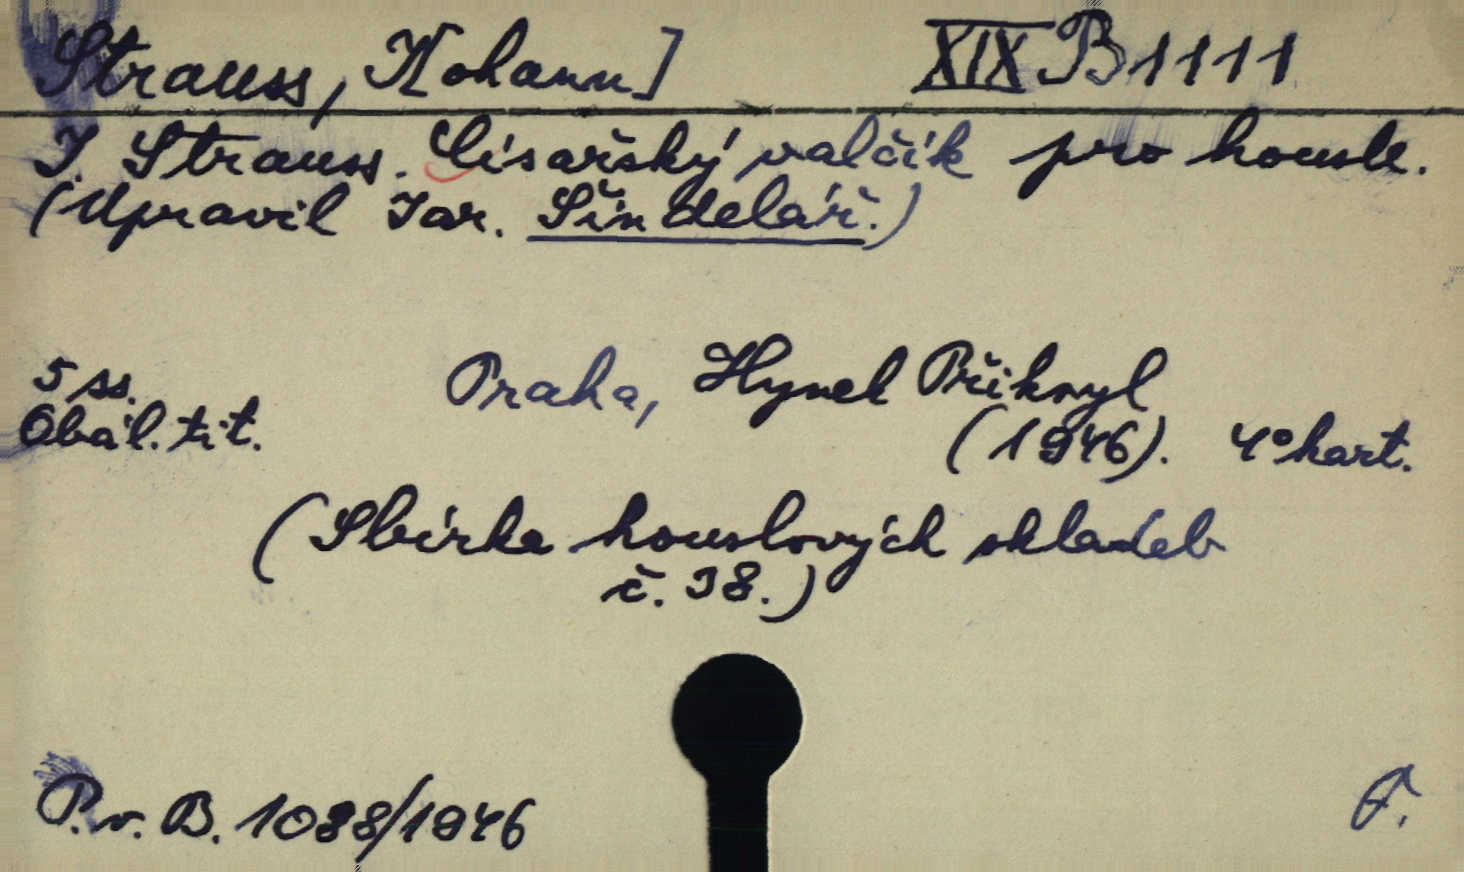 Strauss, J[ohann] XIX B 1111
J. Strauss. Císařský valčík pro housle.
(Upravil Jar. Šindelář.)
5 ss. Praha, Hynek Přikryl
Obál. tit. (1946). 4° kart.
(Sbírka houslových skladeb
č. 38.)
P. v. B. 1088/1946 F.